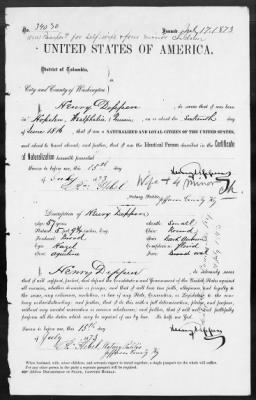 No. 34030
July 17. 1873
one Passport for self wife & four minor children
UNITED STATES OF AMERICA.
District of Columbia,
City and County of Washington
I, Henry Deppen, do swear that I was born
in
Westphalia, Prussia, on or about the Sixteenth day
of June 1816, that I am a NATURALIZED AND LOYAL CITIZEN OF THE UNITED STATES,
and about to travel abroad; and further, that I am the Identical Person described in the Certificate
of Naturalization herewith presented
Sworn to before me, this 15th day
of July 1873
Henry Deppen
Wife & 4 Minor
Notary Public
Jefferson County Ky
Description of Henry Deppen
Age, 57 years
Mouth, Small
Stature, 5 ft
Chin, Round
Forehead, Broad
Hair, Dark Auburn
Eyes, Hazel
Complexion, florid
Nose, Aquiline
Face, Broad oval
I, Henry Deppen, do solemnly swear
that I will support, protect, defend the Constitution and Government of the United States against
all enemies, whether domestic or foreign; and that I will bear true faith, allegiance, and loyalty to
the same, any ordinance, resolution, or law of any State, Convention, or Legislature to the contrary
notwithstanding; and further, that I do this with a full determination, pledge, and purpose,
without any mental reservation or evasion whatsoever; and further, that I will well and faithfully
perform all the duties which may be required of me by law. So help me God.
Sworn to before me, this 15th day
of July 1873
Henry Deppen
Notary Public
Jefferson County Ky